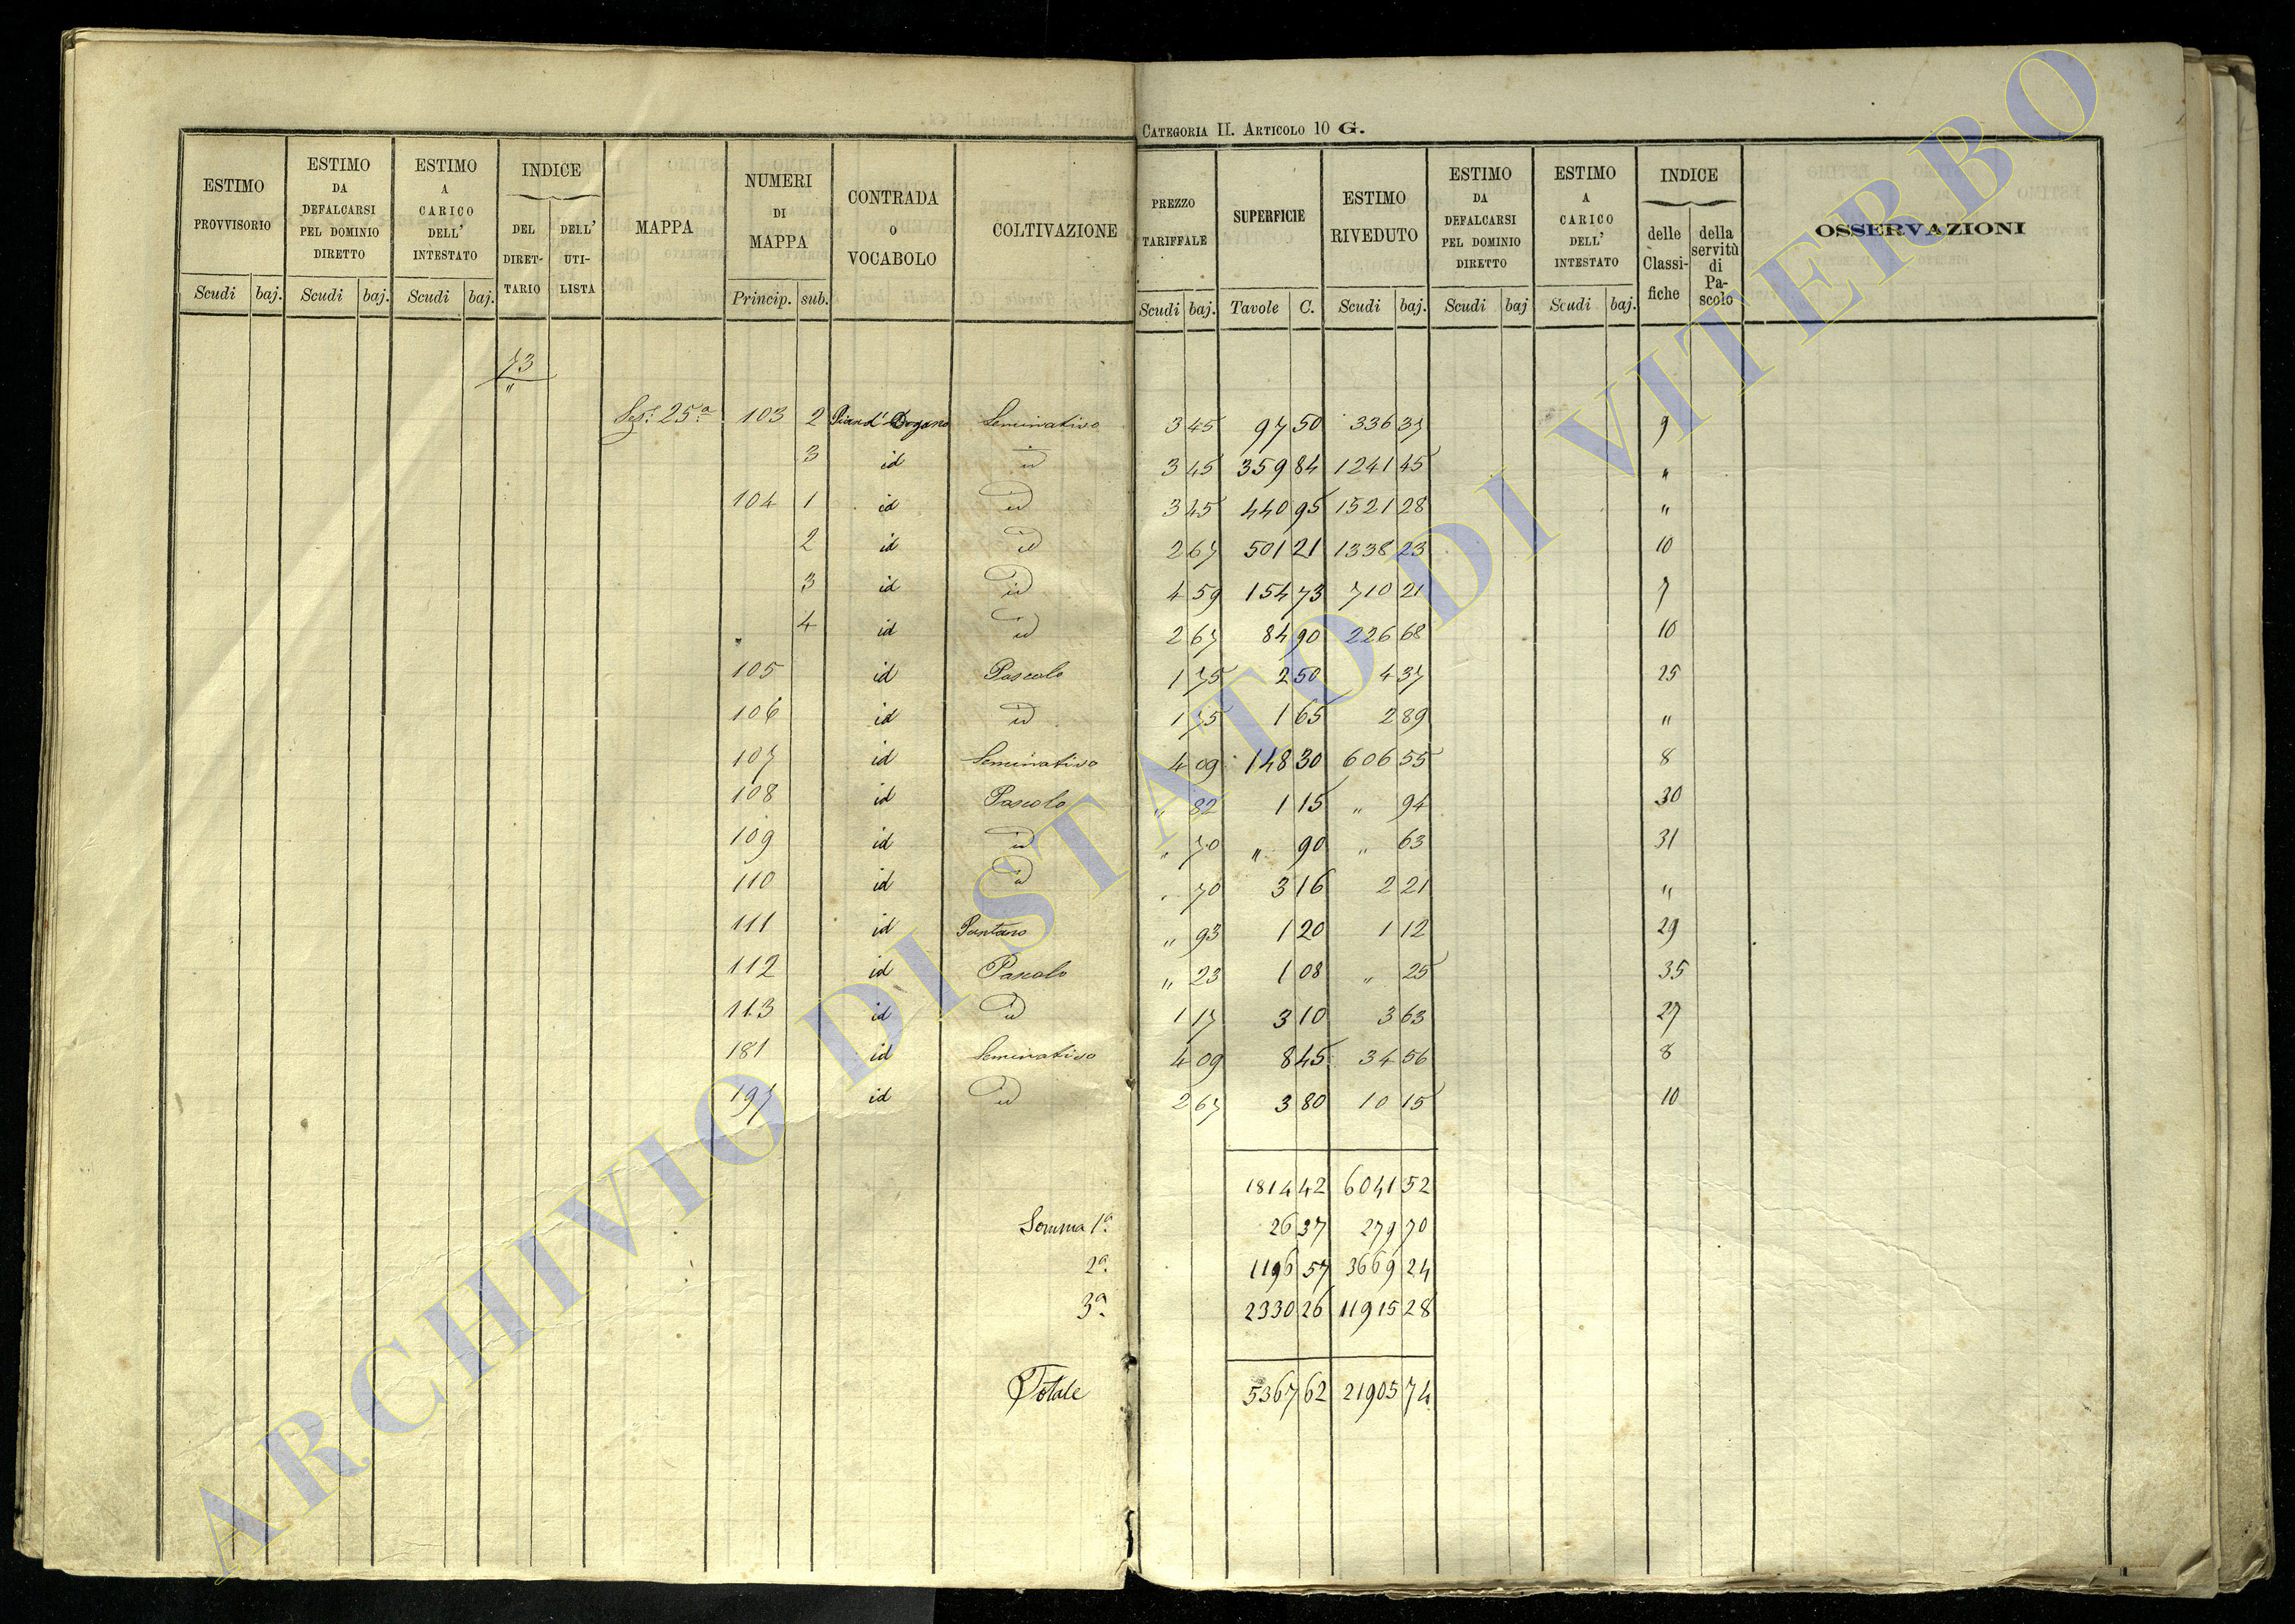 CATEGORIA II. ARTICOLO 10 G.
ESTIMO PROVVISORIO Scudi baj.
ESTIMO DA DEFALCARSI PEL DOMINIO DIRETTO Scudi baj.
ESTIMO A CARICO DELL' INTESTATO Scudi baj.
INDICE DEL DIRET-TARIO DELL' UTI-LISTA
MAPPA
NUMERI DI MAPPA Princip. sub.
CONTRADA o VOCABOLO
COLTIVAZIONE
PREZZO TARIFFALE Scudi baj.
SUPERFICIE Tavole C.
ESTIMO RIVEDUTO Scudi baj.
ESTIMO DA DEFALCARSI PEL DOMINIO DIRETTO Scudi baj
ESTIMO A CARICO DELL' INTESTATO Scudi baj.
INDICE delle Classi-fiche della servitù di Pa-scolo
OSSERVAZIONI
73
"
Sez. 25ª 103 2 Seminativo 3 45 97 50 336 37 9
3 id id 3 45 359 84 1241 45 "
104 1 id id 3 45 440 95 1521 28 "
2 id id 2 67 501 21 1338 23 10
3 id id 4 59 154 73 710 21 7
4 id id 2 67 84 90 226 68 10
105 id Pascolo 1 75 2 50 4 37 25
106 id id 1 75 1 65 2 89 "
107 id Seminativo 4 09 148 30 606 55 8
108 id Pascolo " 82 1 15 " 94 30
109 id id " 70 " 90 " 63 31
110 id id " 70 3 16 2 21 "
111 id Pantano " 93 1 20 1 12 29
112 id Pascolo " 23 1 08 " 25 35
113 id id 1 17 3 10 3 63 27
181 id Seminativo 4 09 8 45 34 56 8
197 id id 2 67 3 80 10 15 10
1814 42 6041 52
Somma 1ª 26 37 279 70
2ª 1196 57 3669 24
3ª 2330 26 11915 28
Totale 5367 62 21905 74
ARCHIVIO DI STATO DI VITERBO